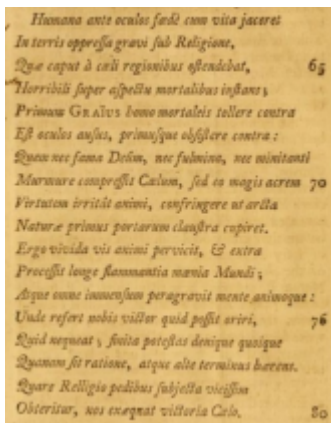 Humana ante oculos fœdè cum vita jaceret
In terris oppreſſa gravi ſub Religione,
Quæ caput à cœli regionibus oſtendebat, 65
Horribili ſuper aſpectu mortalibus inſtans;
Primum GRAIUS homo mortaleis tollere contra
Eſt oculos auſus, primuſque obſiſtere contra:
Quem nec fama Deûm, nec fulmina, nec minitanti
Murmure compreſſit Cælum, ſed eo magis acrem 70
Virtutem irritât animi, confringere ut arcta
Naturæ primus portarum clauſtra cupiret.
Ergo vivida vis animi pervicit, & extra
Proceſſit longe flammantia mœnia Mundi;
Atque omne immenſum peragravit mente animoque:
Unde refert nobis victor quid poſſit oriri, 76
Quid nequeat; finita poteſtas denique quoique
Quanam ſit ratione, atque alte terminus hærens.
Quare Relligio pedibus ſubjecta viciſſim
Obteritur, nos exæquat victoria Cœlo. 80